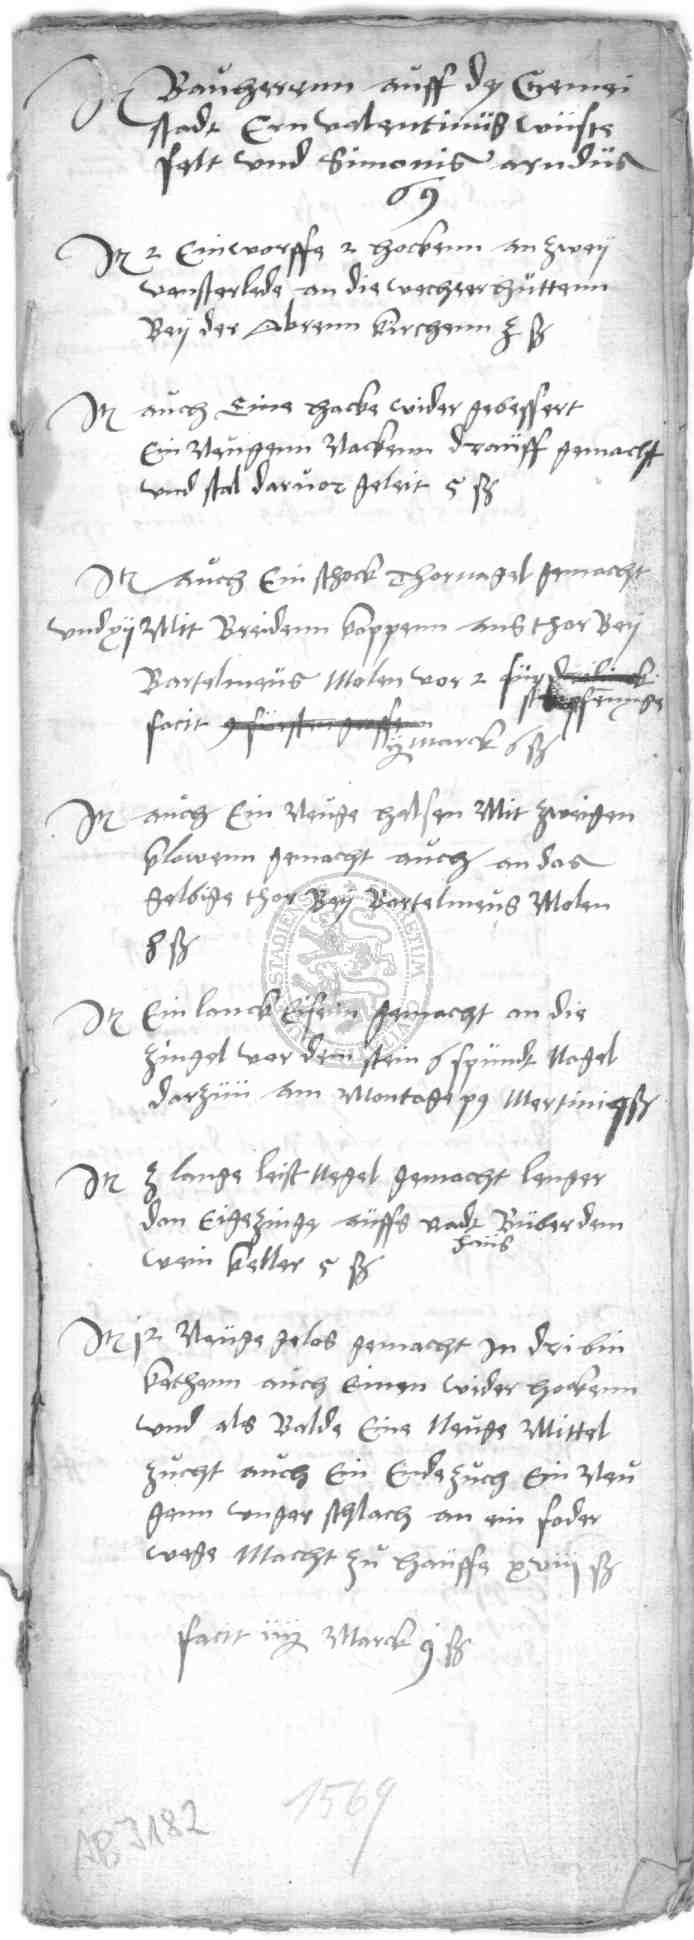 It Bauherenn auff dy Gemei
stadt Ern valentinus wuste
felt vnd Simonis arndus
69
It 2 Einworffe 2 hockenn an zweÿ
vensterlede an die wechter huttenn
Beÿ der Abrenn kirchenn 3 ß
It auch Eine hacke wider gebessert
Ein Neugenn Nackenn drauff gemacht
vnd stal daruor geleit 5 ß
It auch Ein schock Thornagel gemacht
vnd xij Mit Breidenn koppenn ans thor Beÿ
Bartelmeus Molen vor 2
pfennige
facit
Marck 6 ß
It auch Ein Neuge halsen Mit zweigen
klowenn gemacht auch an das
selbige thor Beÿ Bartelmeus Molen
8 ß
It Ein lanck Eisenn gemacht an die
zingel vor dem stein 6 spundt Nagel
darzuu am Montage p9 Mertini 9 ß
It 3 lange leist Negel gemacht lenger
dan Eigezinge auffs radt Buber dem
haus
wein keller 5 ß
It 12 Neuge gelos gemacht In dri bin
kethenn auch Einen wider hockenn
vnd als Balde Eine Neuge Mittel
zucht auch Ein Endezuch Ein Neu
genn vnger schlach an ein foder
wege Macht zu hauffe xviij ß
facit iiij Marck j ß
1569
AB I 182